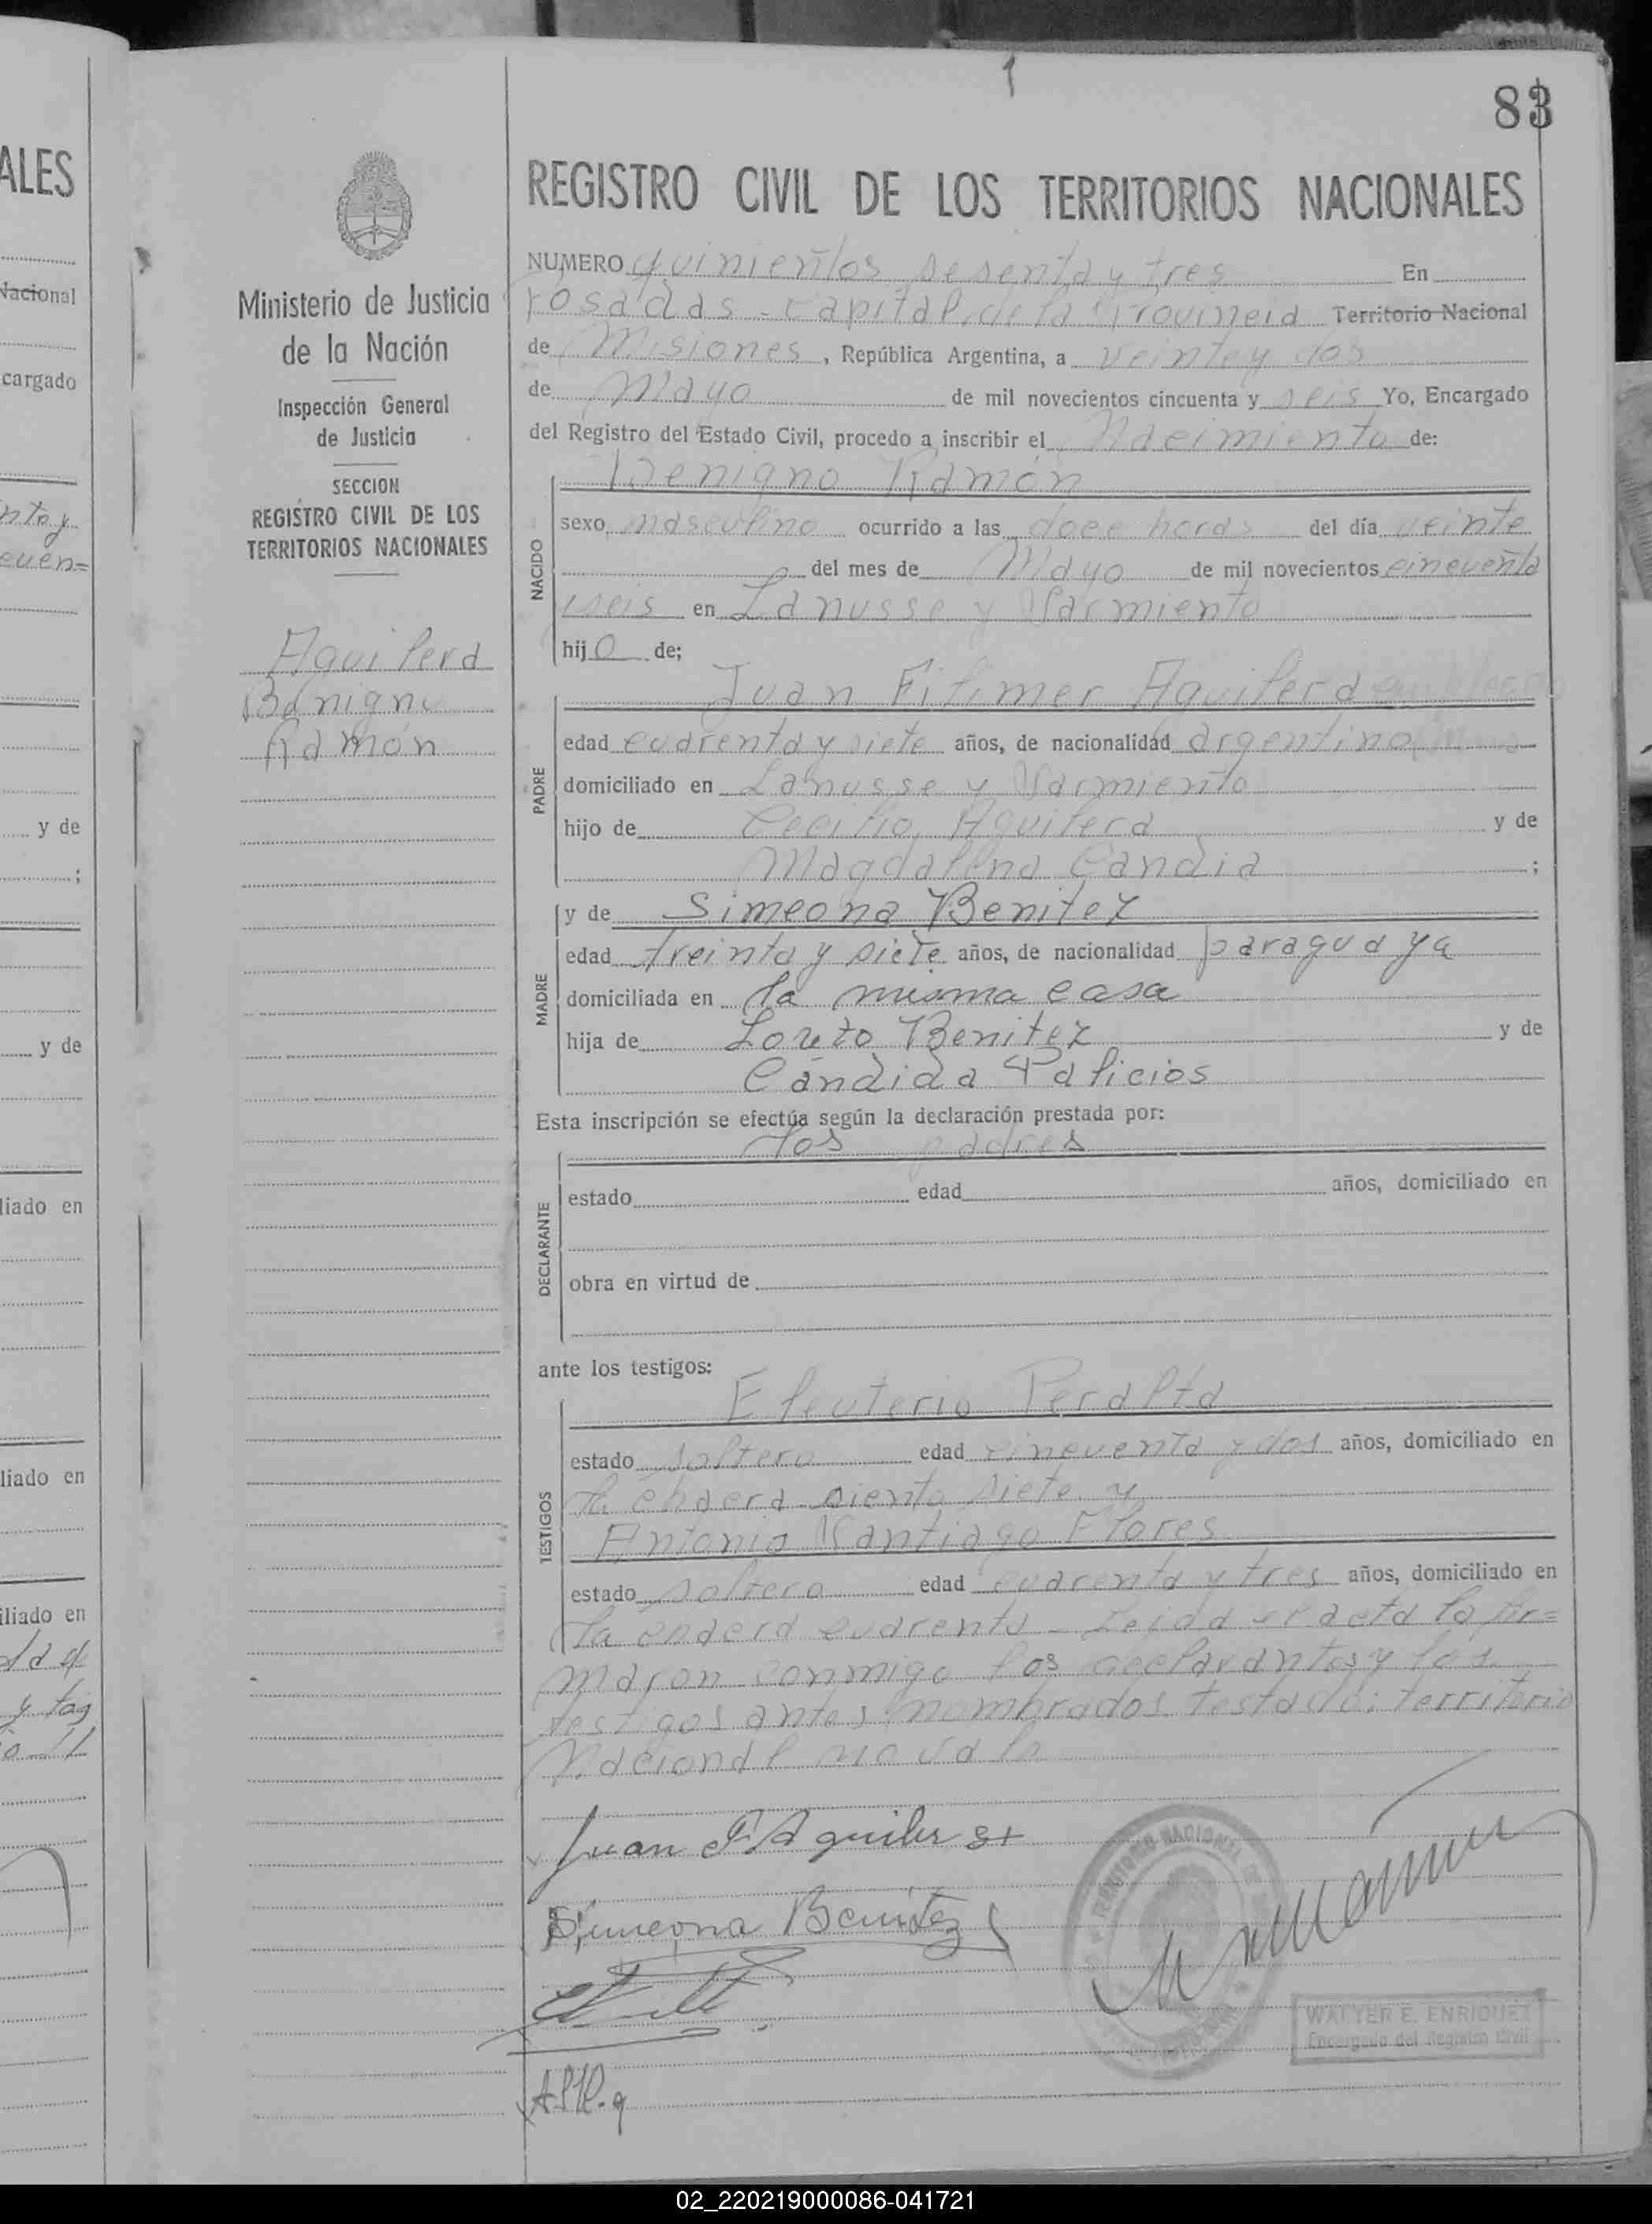 83
REGISTRO CIVIL DE LOS TERRITORIOS NACIONALES
NUMERO quinientos sesenta y tres En
Posadas - Capital de la Provincia Territorio Nacional
de Misiones, República Argentina, a veinte y dos
de Mayo de mil novecientos cincuenta y seis Yo, Encargado
del Registro del Estado Civil, procedo a inscribir el Nacimiento de:
NACIDO
Benigno Ramón
sexo masculino ocurrido a las doce horas del día veinte
del mes de Mayo de mil novecientos cincuenta
iseis en Lanusse y Sarmiento
hijo de;
PADRE
Juan Filimer Aguilera
edad cuarenta y siete años, de nacionalidad argentino
domiciliado en Lanusse y Sarmiento
hijo de Cecilio Aguilera y de
Magdalena Candia ;
MADRE
y de Simeona Benitez
edad treinta y siete años, de nacionalidad paraguaya
domiciliada en la misma casa
hija de Loreto Benitez y de
Candida Palicios
Esta inscripción se efectúa según la declaración prestada por:
los padres
DECLARANTE
estado edad años, domiciliado en
obra en virtud de
ante los testigos:
TESTIGOS
Eleuterio Peralta
estado soltero edad cincuenta y dos años, domiciliado en
la chacra siento siete y
Antonio Santiago Flores
estado soltero edad cuarenta y tres años, domiciliado en
la chacra cuarenta - Leida el acta la fir=
maron conmigo los declarantes y los
testigos antes nombrados. testado: territorio
Nacional no vale
Juan F. Aguilera
Simeona Benitez
WALTER E. ENRIQUEZ
Encargado del Registro Civil
Ministerio de Justicia
de la Nación
Inspección General
de Justicia
SECCION
REGISTRO CIVIL DE LOS
TERRITORIOS NACIONALES
Aguilera
Benigno
Ramon
ALES
Nacional
cargado
y de
;
y de
liado en
liado en
iliado en
02_220219000086-041721